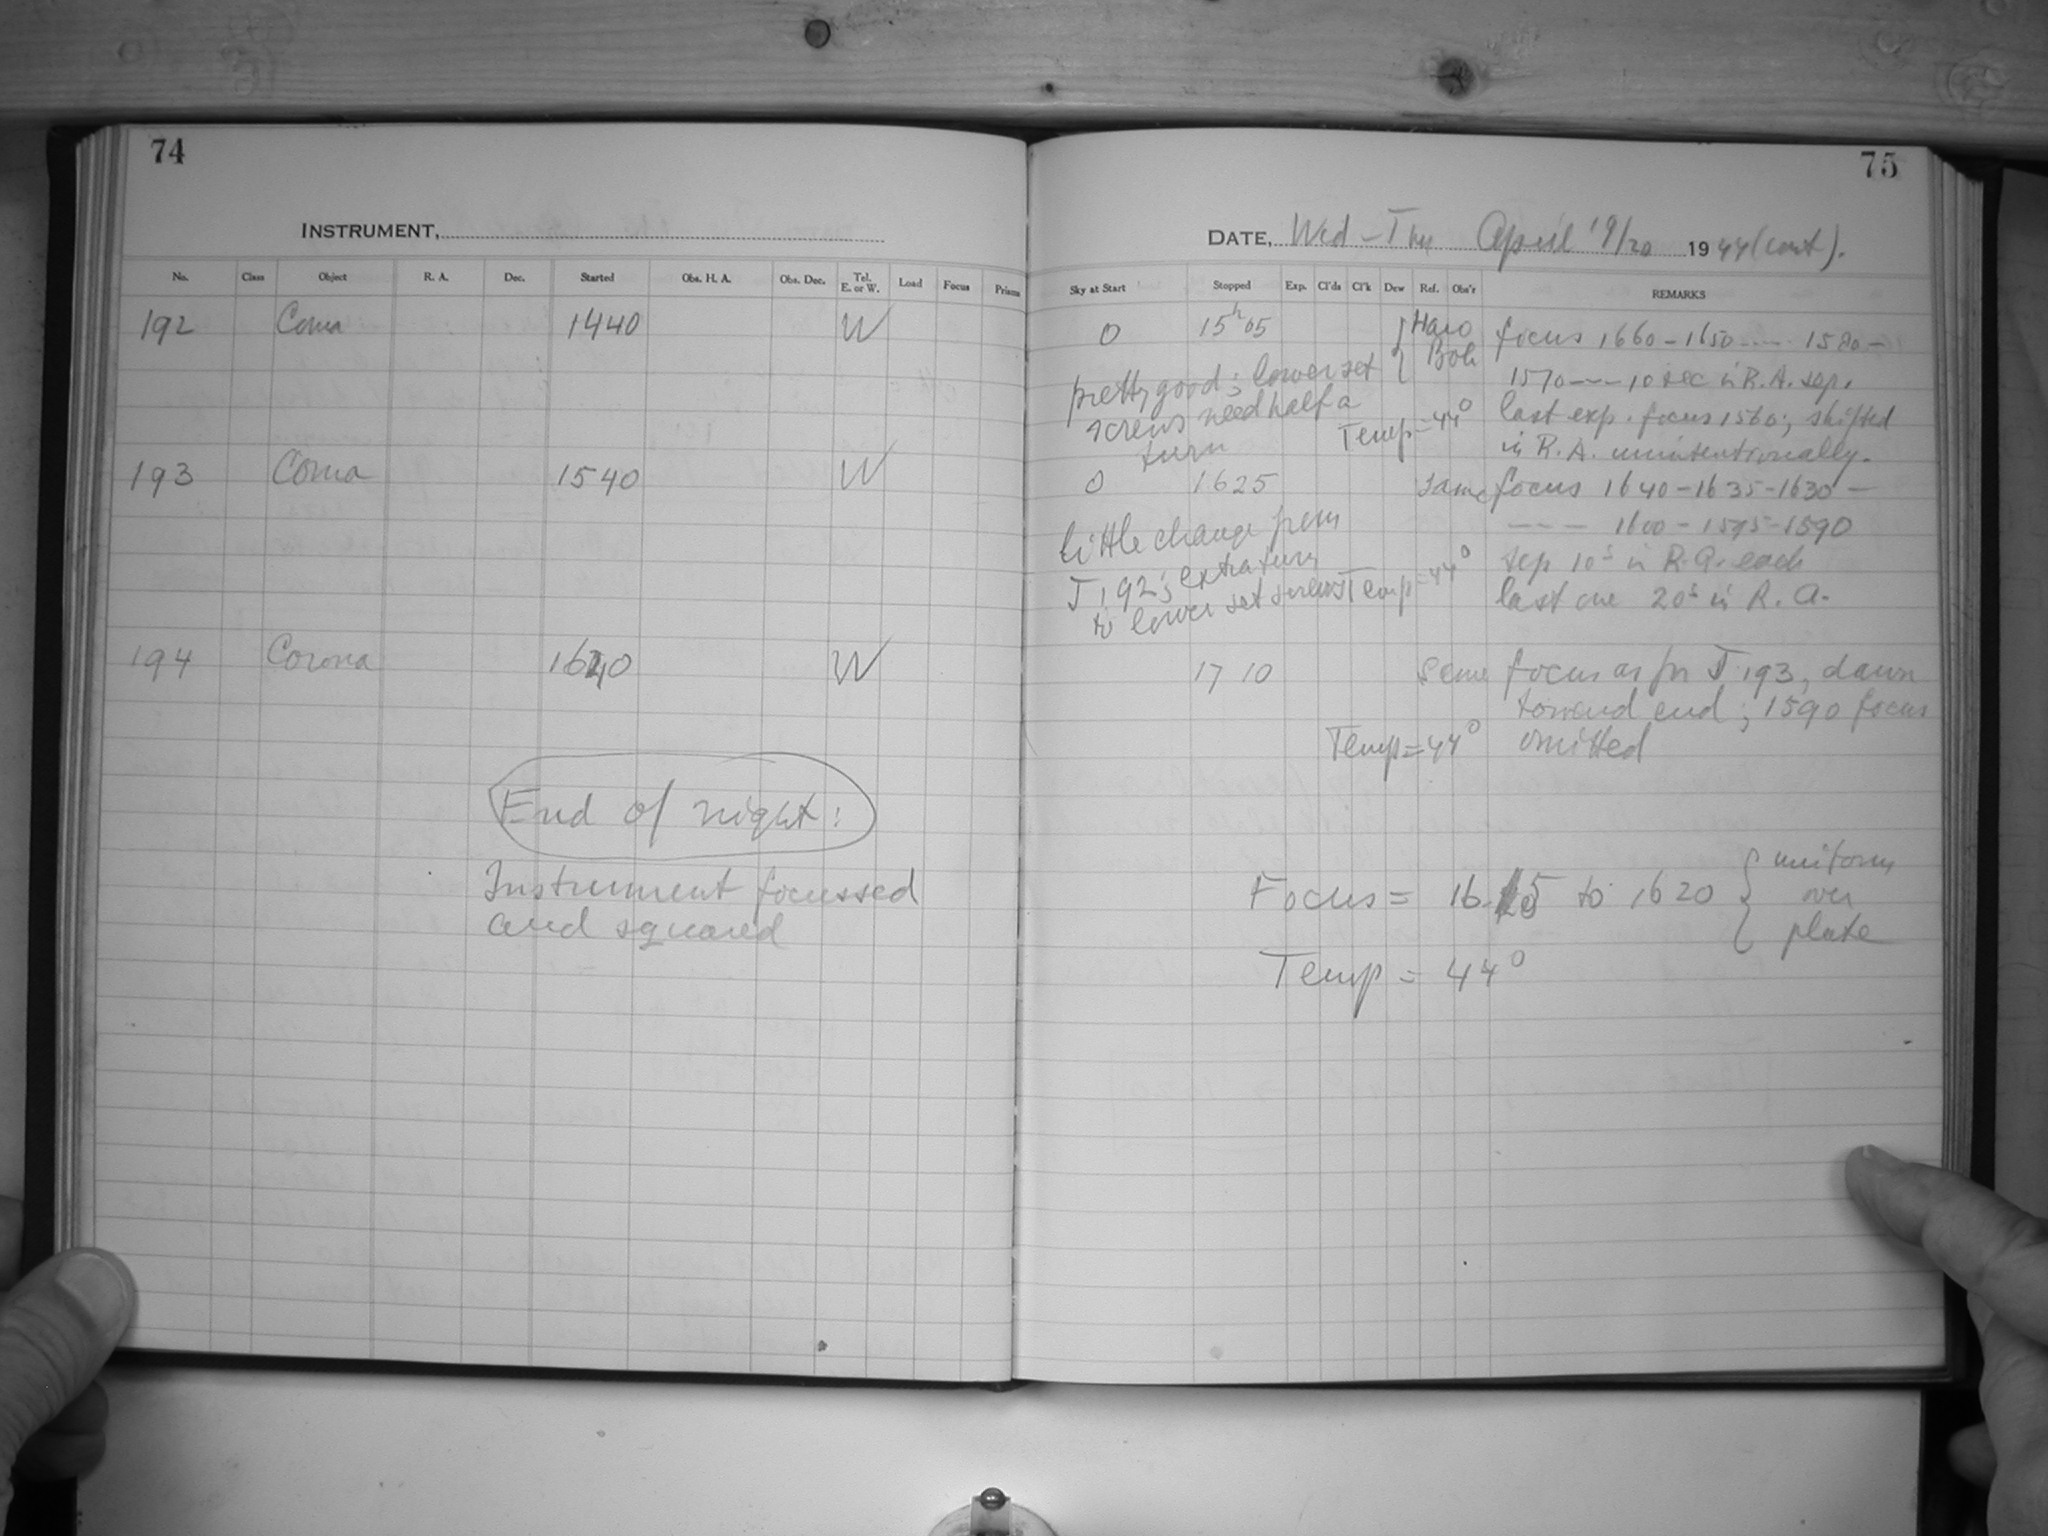 74
INSTRUMENT,
No. Class Object R. A. Dec. Started Obs. H. A. Obs. Dec. Tel. E. or W. Load Focus Prisms
192 Coma 1440 W
193 Coma 1540 W
194 Corona 1640 W
End of night:
Instrument focussed
and squared
75
DATE, Wed - Thu April 19/20 1944 (cont).
Sky at Start Stopped Exp. Cl'ds Cl'k Dew Ref. Obs'r REMARKS
0 15h05 Haro focus 1660 - 1650 ---- 1580 -
Bok 1570 --- 10 sec in R.A. sep.
pretty good; lower set
screws need half a
turn
Temp = 44° last exp. focus 1560; shifted
in R.A. unintentionally.
0 1625 same focus 1640 - 1635 - 1630 -
---- 1600 - 1595 - 1590
little change from
J 192; extra turn
to lower set screws Temp = 44°
sep 10s in R.A. each
last one 20s in R.A.
1710 same focus as for J 193, dawn
toward end; 1590 focus
Temp = 44° omitted
Focus = 1615 to 1620 { uniform
over
plate
Temp = 44°